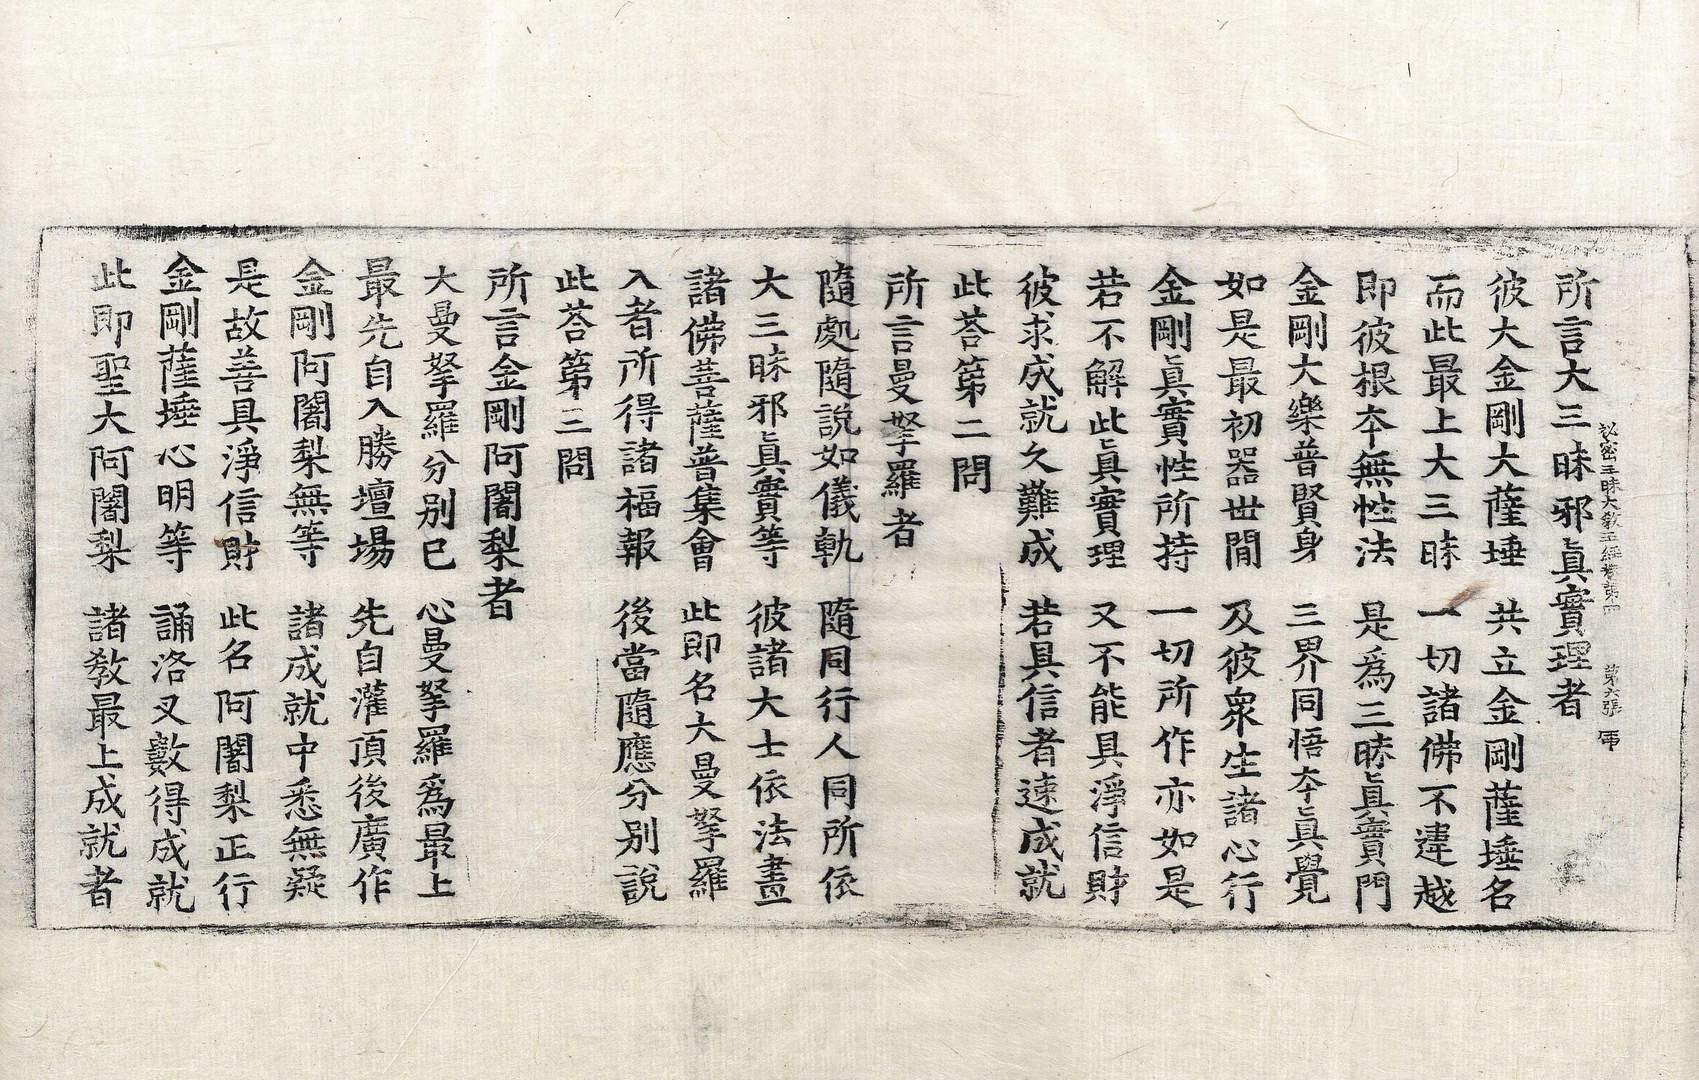 所言大三昧邪眞實理者
秘密三昧大教王經卷第四 第六張
彼大金剛大薩埵 共立金剛薩埵名
而此最上大三昧 一切諸佛不違越
即彼根本無性法 是爲三昧眞實門
金剛大樂普賢身 三界同悟本眞覺
如是最初器世間 及彼衆生諸心行
金剛眞實性所持 一切所作亦如是
若不解此眞實理 又不能具淨信財
彼求成就久難成 若具信者速成就
此荅第二問
所言曼拏羅者
隨處隨說如儀軌 隨同行人同所依
大三昧邪眞實等 彼諸大士依法畫
諸佛菩薩普集會 此即名大曼拏羅
入者所得諸福報 後當隨應分別說
此荅第三問
所言金剛阿闍梨者
大曼拏羅分別已 心曼拏羅爲最上
最先自入勝壇場 先自灌頂後廣作
金剛阿闍梨無等 諸成就中悉無疑
是故善具淨信財 此名阿闍梨正行
金剛薩埵心明等 誦洛叉數得成就
此即聖大阿闍梨 諸教最上成就者